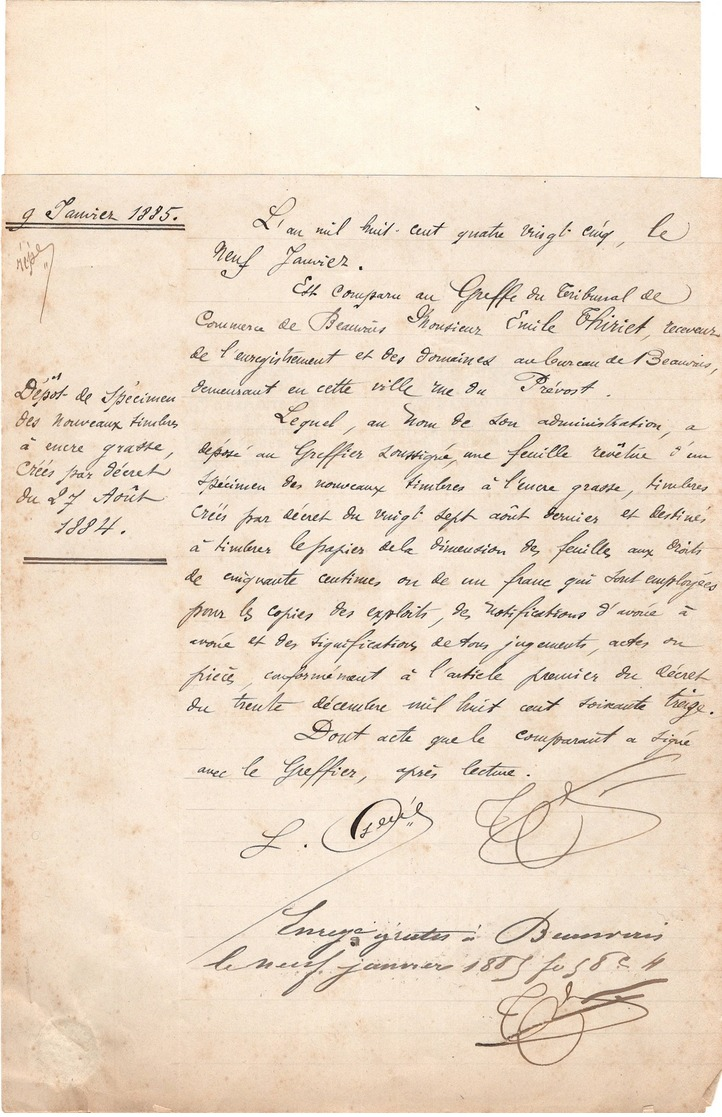 9 Janvier 1885.
Dépôt de Spécimen
des nouveaux timbres
à encre grasse,
créés par décret
du 27 Août
1884.
L'an mil huit-cent quatre vingt cinq, le
neuf Janvier.
Est comparu au Greffe du Tribunal de
Commerce de Beauvais Monsieur Emile Thiriet, receveur
de l'enregistrement et des domaines au bureau de Beauvais,
demeurant en cette ville rue du Prévost.
Lequel, au nom de son administration, a
déposé au Greffier soussigné, une feuille revêtue d'un
spécimen des nouveaux timbres à l'encre grasse, timbres
créés par décret du vingt sept août dernier et destinés
à timbrer le papier de la dimension des feuilles aux droits
de cinquante centimes ou de un franc qui sont employées
pour les copies des exploits, des notifications d'avoué à
avoué et des significations de tous jugements, actes ou
pièce, conformément à l'article premier du décret
du trente décembre mil huit cent soixante treize.
Dont acte que le comparant a signé
avec le Greffier, après lecture.
Enregé gratis à Beauvais
le neuf janvier 1885 fo 58 c 4